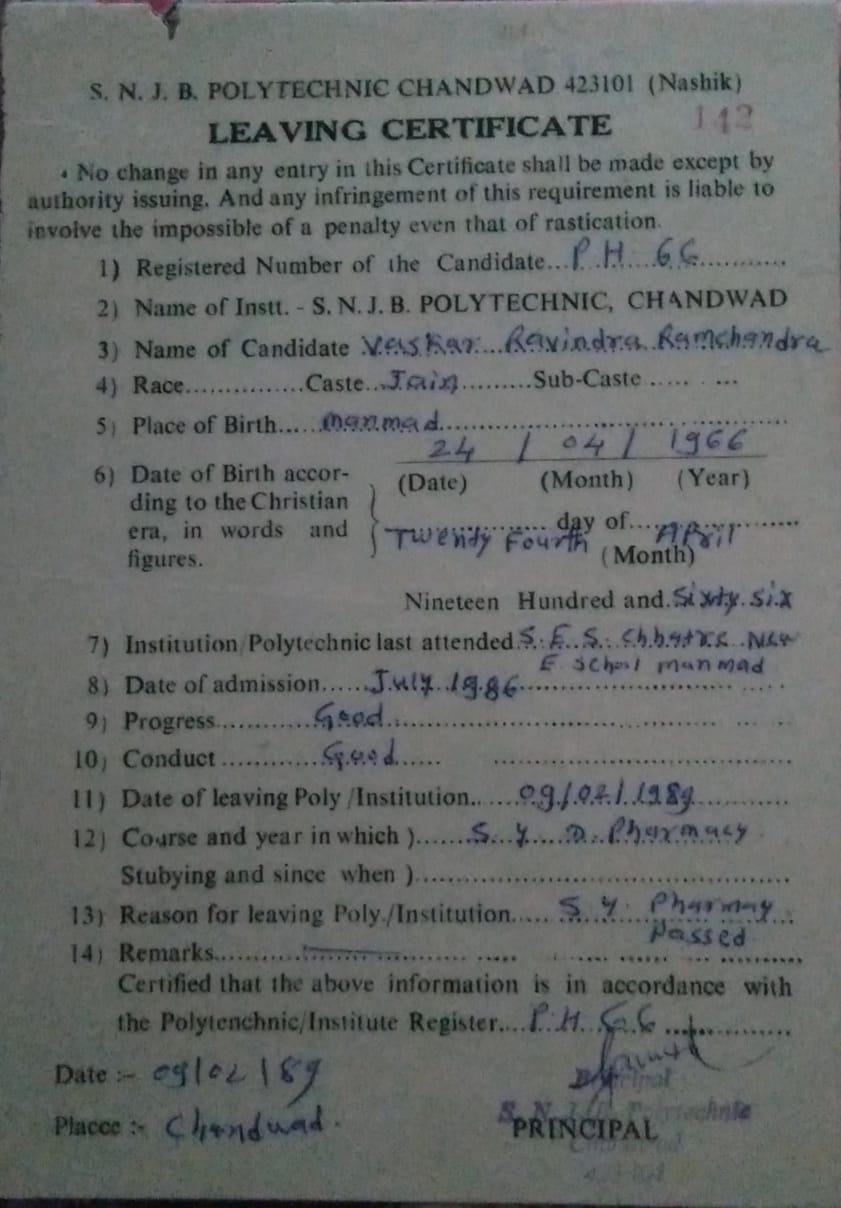 S. N. J. B. POLYTECHNIC CHANDWAD 423101 (Nashik)
LEAVING CERTIFICATE 142
No change in any entry in this Certificate shall be made except by
authority issuing. And any infringement of this requirement is liable to
involve the impossible of a penalty even that of rastication.
1) Registered Number of the Candidate... P.H. 66
2) Name of Instt. - S. N. J. B. POLYTECHNIC, CHANDWAD
3) Name of Candidate Vaskar Ravindra Ramchandra
4) Race...............Caste...Jain.........Sub-Caste ..... . ...
5) Place of Birth......manmad
24 / 04 / 1966
6) Date of Birth accor- (Date) (Month) (Year)
ding to the Christian
era, in words and Twenty Fourth day of April
figures. (Month)
Nineteen Hundred and Sixty six
7) Institution/Polytechnic last attended S. E. S. Chhatre New
E School manmad
8) Date of admission......July 1986
9) Progress............Good
10) Conduct............Good
11) Date of leaving Poly /Institution......09/02/1989
12) Course and year in which ).......S. Y. D. Pharmacy
Stubying and since when )
13) Reason for leaving Poly./Institution..... S Y Pharmay
Passed
14) Remarks
Certified that the above information is in accordance with
the Polytenchnic/Institute Register....P.H. 66
Date :- 09/02/89
Placce :- Chandwad.
PRINCIPAL